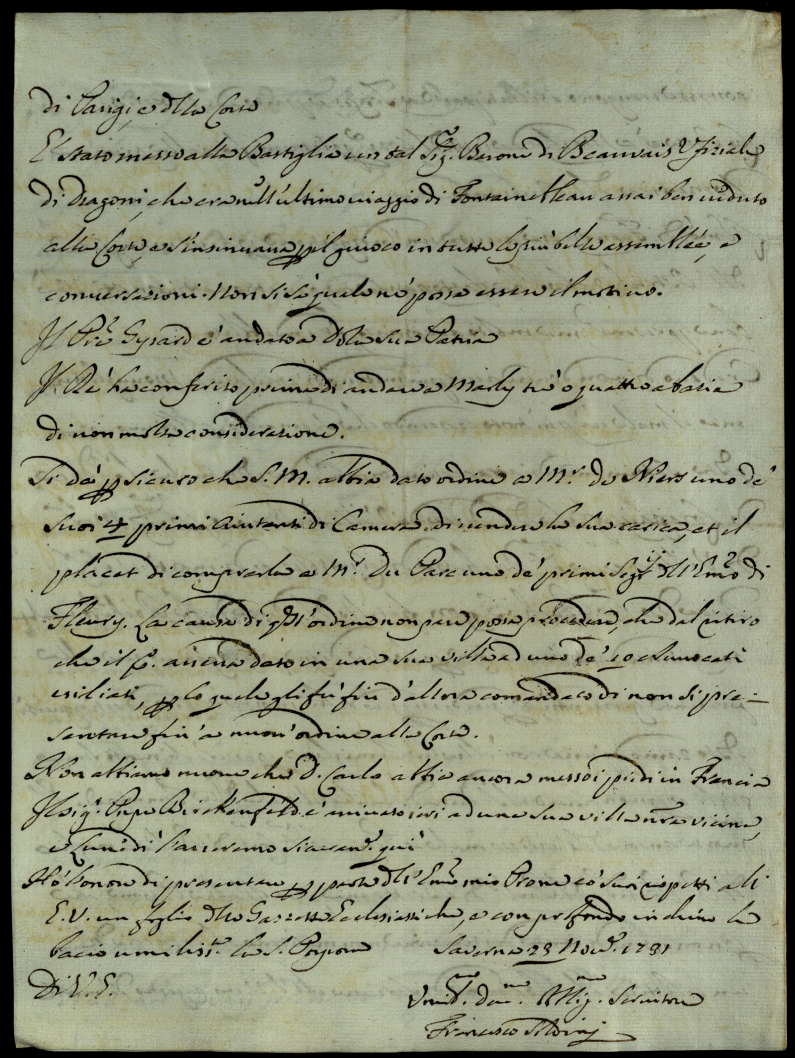 di Parigi, e della Corte
E' stato messo alla Bastiglia un tal Sig.r Barone di Beauvais Ufiziale
di Dragoni, che era nell'ultimo viaggio di Fontainebleau assai ben veduto
alla Corte, e s'insinuava p il giuoco in tutte le più belle assemblée, e
conversazioni. Non si sà quale nè possa essere il motivo.
Il Pre Gyrard è andato a Dola sua Patria
Il Rè hà conferito prima di andare a Marly trè o quattro abazie
di non molta considerazione.
Si dà p sicuro che S. M. abbia dato ordine a Mr. de Niers uno de'
suoi 4 primi Aiutanti di Camera di vendere la sua carica, et il
placet di comprarla a Mr. Du Parc uno de' primi Segrj dell'Emo di
Fleury. La causa di qst'ordine non pare possa procedere, che dal ritiro
che il aveva dato in una sua villa ad uno de' 10 Avvocati
esiliati, p lo quale gli fù fin d'allora comandato di non si pre=
sentare fin'a nuov'ordine alla Corte.
Non abbiamo nuove che D. Carlo abbia ancora messo i piedi in Francia
Il Sig. Pnpe Birkenfeld è arrivato ieri ad una sua villa nra vicina,
e Lunedì l'averemo stasera qui
Hò l'onore di presentare p parte dell'Emo mio Prone co' suoi rispetti all'
E. V. un foglio delle Gazzette Ecclesiastiche, e con profondo inchino le
bacio umilist.e la S. Porpora Saverna 23 Nov.e 1731
Di V. E.
Umil.mo Dev.mo Obblig.mo Servitore
Francesco